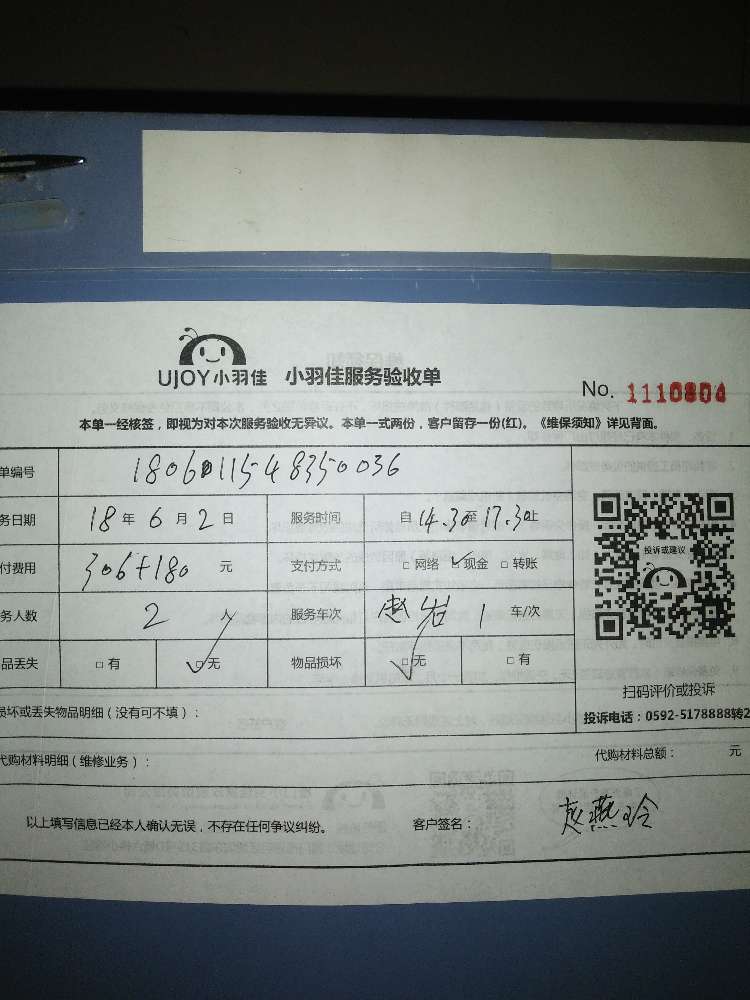 UJOY小羽佳 小羽佳服务验收单
No. 1110804
本单一经核签，即视为对本次服务验收无异议。本单一式两份，客户留存一份(红)。《维保须知》详见背面。
单编号 1806011548350036
务日期 18 年 6 月 2 日 服务时间 自 14.30 至 17.30 止
付费用 306+180 元 支付方式 □ 网络 ☑ 现金 □ 转账
务人数 2 人 服务车次 1 车/次
品丢失 □ 有 ☑ 无 物品损坏 ☑ 无 □ 有
投诉或建议
扫码评价或投诉
投诉电话：0592-5178888转2
损坏或丢失物品明细（没有可不填）：
代购材料明细（维修业务）： 代购材料总额： 元
以上填写信息已经本人确认无误，不存在任何争议纠纷。 客户签名： 赵燕玲